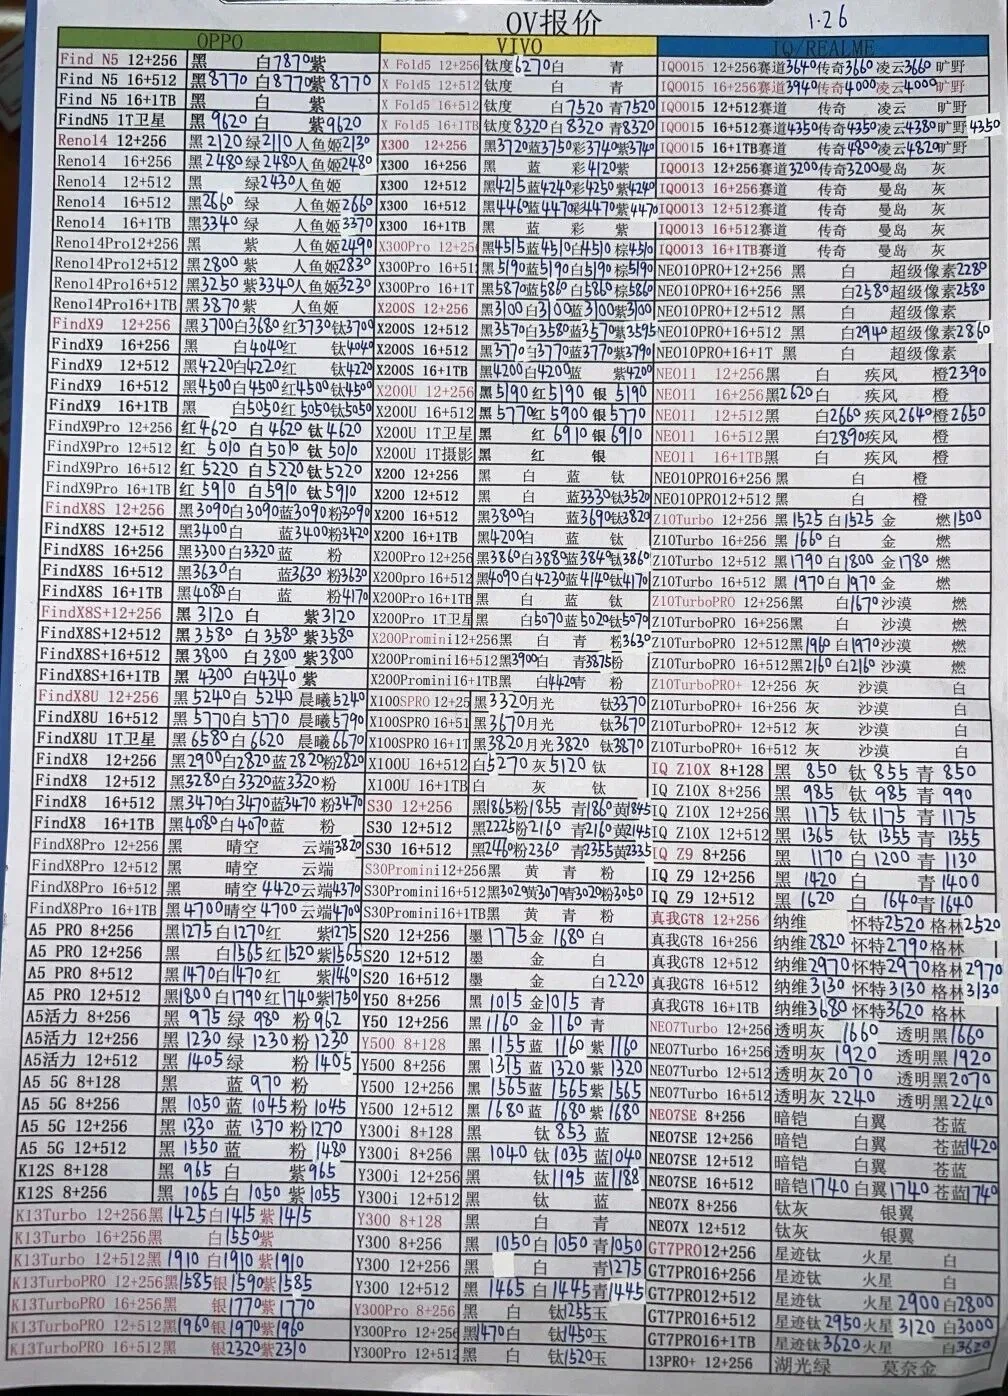 OV报价
1.26
OPPO
Find N5 12+256 黑 白7870紫
Find N5 16+512 黑8770 白8770紫8770
Find N5 16+1TB 黑 白 紫
FindN5 1T卫星 黑9620白 紫9620
Reno14 12+256 黑2120绿2110人鱼姬2130
Reno14 16+256 黑2480绿2480人鱼姬2480
Reno14 12+512 黑 绿2430人鱼姬
Reno14 16+512 黑2660绿 人鱼姬2660
Reno14 16+1TB 黑3340绿 人鱼姬3370
Reno14Pro12+256 黑 紫 人鱼姬2490
Reno14Pro12+512 黑2800紫 人鱼姬2830
Reno14Pro16+512 黑3250紫3340人鱼姬3230
Reno14Pro16+1TB 黑3870紫 人鱼姬
FindX9 12+256 黑3700白3680红3730钛3700
FindX9 16+256 黑 白4040红 钛4040
FindX9 12+512 黑4220白4220红 钛4220
FindX9 16+512 黑4500白4500红4500钛4500
FindX9 16+1TB 黑 白5050红5050钛5050
FindX9Pro 12+256 红4620 白4620钛4620
FindX9Pro 12+512 红5010 白5010钛5010
FindX9Pro 16+512 红5220 白5220钛5220
FindX9Pro 16+1TB 红5910 白5910 钛5910
FindX8S 12+256 黑3090白3090蓝3090粉3090
FindX8S 12+512 黑3400白 蓝3400粉3420
FindX8S 16+256 黑3300白3320蓝 粉
FindX8S 16+512 黑3630白 蓝3630粉3630
FindX8S 16+1TB 黑4080白 蓝 粉4170
FindX8S+12+256 黑3120 白 紫3120
FindX8S+12+512 黑3580 白3580紫3580
FindX8S+16+512 黑3800 白3800紫3800
FindX8S+16+1TB 黑4300 白4340紫
FindX8U 12+256 黑5240白5240 晨曦5240
FindX8U 16+512 黑5770白5770 晨曦5790
FindX8U 1T卫星 黑6580白6620 晨曦6670
FindX8 12+256 黑2900白2820蓝2820粉2820
FindX8 12+512 黑3280白3320蓝3320粉
FindX8 16+512 黑3470白3470蓝3470粉3470
FindX8 16+1TB 黑4080白4070蓝 粉
FindX8Pro 12+256 黑 晴空 云端3820
FindX8Pro 12+512 黑 晴空 云端
FindX8Pro 16+512 黑 晴空4420云端4370
FindX8Pro 16+1TB 黑4700晴空4700云端4700
A5 PRO 8+256 黑1275白1270红 紫1275
A5 PRO 12+256 黑 白1565红1520紫1565
A5 PRO 8+512 黑1470白1470红 紫1460
A5 PRO 12+512 黑1800白1790红1740紫1750
A5活力 8+256 黑 975 绿 980 粉962
A5活力 12+256 黑 1230 绿 1230粉1230
A5活力 12+512 黑 1405绿 粉1405
A5 5G 8+128 黑 蓝970粉
A5 5G 8+256 黑 1050蓝1045粉1045
A5 5G 12+256 黑 1330蓝 1370粉1270
A5 5G 12+512 黑 1550蓝 粉1480
K12S 8+128 黑 965白 紫965
K12S 8+256 黑 1065白1050紫1055
K13Turbo 12+256黑1425白1415紫1415
K13Turbo 16+256黑 白1550紫
K13Turbo 12+512黑1910白1910紫1910
K13TurboPRO 12+256黑1585银1590紫1585
K13TurboPRO 16+256黑 银1770紫1770
K13TurboPRO 12+512黑1960银1970紫1960
K13TurboPRO 16+512黑 银2320紫2310
VIVO
X Fold5 12+256 钛度6270白 青
X Fold5 12+512 钛度 白 青
X Fold5 16+512 钛度 白7520青7520
X Fold5 16+1TB 钛度8320白8320青8320
X300 12+256 黑3720蓝3750彩3740紫3740
X300 16+256 黑 蓝 彩4120紫
X300 12+512 黑4215蓝4240彩4250紫4240
X300 16+512 黑4460蓝4470彩4470紫4470
X300 16+1TB 黑 蓝 彩 紫
X300Pro 12+256 黑4515蓝4510白4510棕4510
X300Pro 16+512 黑5190蓝5190白5190棕5190
X300Pro 16+1T 黑5870蓝5860白5860棕5860
X200S 12+256 黑3100白3100蓝3100紫3100
X200S 12+512 黑3570白3580蓝3570紫3595
X200S 16+512 黑3770白3770蓝3770紫3790
X200S 16+1TB 黑4200白4200蓝 紫4200
X200U 12+256 黑5190红5190 银5190
X200U 16+512 黑5770红5900 银5770
X200U 1T卫星 黑 红6910银6910
X200U 1T摄影 黑 红 银
X200 12+256 黑 白 蓝 钛
X200 12+512 黑 白 蓝3330钛3520
X200 16+512 黑3800白 蓝3690钛3820
X200 16+1TB 黑4200白 蓝 钛
X200Pro 12+256 黑3860白3880蓝3840钛3860
X200pro 16+512 黑4090白4230蓝4140钛4170
X200Pro 16+1TB 黑 白 蓝 钛
X200Pro 1T卫星 黑 白5070蓝5020钛5070
X200Promini12+256黑 白 青 粉3630
X200Promini16+512黑3900白 青3875粉
X200Promini16+1TB黑 白4420青 粉
X100SPRO 12+256 黑3320月光 钛3370
X100SPRO 16+512 黑3670月光 钛3670
X100SPRO 16+1T 黑3820月光3820 钛3870
X100U 16+512 白5270灰5120钛
X100U 16+1TB 白 灰 钛
S30 12+256 黑1865粉1855 青1860黄1845
S30 12+512 黑2225粉2160 青2160黄2145
S30 16+512 黑2460粉2360 青2355黄2335
S30Promini12+256黑 黄 青 粉
S30Promini16+512黑3020黄3070青3020粉3050
S30Promini16+1TB黑 黄 青 粉
S20 12+256 墨1775金 1680白
S20 12+512 墨 金 白
S20 16+512 墨 金 白2220
Y50 8+256 黑 1015 金1015 青
Y50 12+256 黑 1160 金1160 青
Y500 8+128 黑 1155蓝 1160紫1160
Y500 8+256 黑 1315蓝 1320紫1320
Y500 12+256 黑 1565蓝 1565紫1565
Y500 12+512 黑 1680蓝 1680紫1680
Y300i 8+128 黑 钛853蓝
Y300i 8+256 黑 1040钛1035蓝1040
Y300i 12+256 黑 钛1195蓝1188
Y300i 12+512 黑 钛 蓝
Y300 8+128 黑 白 青
Y300 8+256 黑 1050白1050青1050
Y300 12+256 白 青1275
Y300 12+512 黑 1465白1445青1445
Y300Pro 8+256 黑 白 钛1255玉
Y300Pro 12+256黑1470白 钛1450玉
Y300Pro 12+512黑 白 钛1520玉
IQ/REALME
IQOO15 12+256赛道3640传奇3660凌云3660旷野
IQOO15 16+256赛道3940传奇4000凌云4000旷野
IQOO15 12+512赛道 传奇 凌云 旷野
IQOO15 16+512赛道4350传奇4350凌云4380旷野4350
IQOO15 16+1TB赛道 传奇4800凌云4820旷野
IQOO13 12+256赛道3200传奇3200曼岛 灰
IQOO13 16+256赛道 传奇 曼岛 灰
IQOO13 12+512赛道 传奇 曼岛 灰
IQOO13 16+512赛道 传奇 曼岛 灰
IQOO13 16+1TB赛道 传奇 曼岛 灰
NEO10PRO+12+256 黑 白 超级像素2280
NEO10PRO+16+256 黑 白2580超级像素2580
NEO10PRO+12+512 黑 白 超级像素
NEO10PRO+16+512 黑 白2940超级像素2860
NEO10PRO+16+1T 黑 白 超级像素
NEO11 12+256黑 白 疾风 橙2390
NEO11 16+256黑2620白 疾风 橙
NEO11 12+512黑 白2660疾风2640橙2650
NEO11 16+512黑 白2890疾风 橙
NEO11 16+1TB黑 白 疾风 橙
NEO10PRO16+256 黑 白 橙
NEO10PRO12+512 黑 白 橙
Z10Turbo 12+256 黑1525白1525 金 燃1500
Z10Turbo 16+256 黑1660白 金 燃
Z10Turbo 12+512 黑1790白1800 金1780 燃
Z10Turbo 16+512 黑1970白1970 金 燃
Z10TurboPRO 12+256黑 白1670沙漠 燃
Z10TurboPRO 16+256黑 白 沙漠 燃
Z10TurboPRO 12+512黑1960白1970沙漠 燃
Z10TurboPRO 16+512黑2160白2160沙漠 燃
Z10TurboPRO+ 12+256 灰 沙漠 白
Z10TurboPRO+ 16+256 灰 沙漠 白
Z10TurboPRO+ 12+512 灰 沙漠 白
Z10TurboPRO+ 16+512 灰 沙漠 白
IQ Z10X 8+128 黑 850 钛 855 青 850
IQ Z10X 8+256 黑 985 钛 985 青 990
IQ Z10X 12+256 黑 1175 钛 1175 青 1175
IQ Z10X 12+512 黑 1365 钛 1355 青 1355
IQ Z9 8+256 黑 1170白1200 青1130
IQ Z9 12+256 黑 1420白 青1400
IQ Z9 12+512 黑 1620 白 1640青1640
真我GT8 12+256 纳维 怀特2520格林2520
真我GT8 16+256 纳维2820怀特2790格林
真我GT8 12+512 纳维2970怀特2970格林2970
真我GT8 16+512 纳维3130怀特3130格林3130
真我GT8 16+1TB 纳维3680怀特3620格林
NEO7Turbo 12+256透明灰 1660 透明黑1660
NEO7Turbo 16+256透明灰1920 透明黑1920
NEO7Turbo 12+512透明灰2070 透明黑2070
NEO7Turbo 16+512透明灰2240 透明黑2240
NEO7SE 8+256 暗铠 白翼 苍蓝
NEO7SE 12+256 暗铠 白翼 苍蓝1420
NEO7SE 12+512 暗铠 白翼 苍蓝
NEO7SE 16+512 暗铠1740白翼1740苍蓝1740
NEO7X 8+256 钛灰 银翼
NEO7X 12+512 钛灰 银翼
GT7PRO12+256 星迹钛 火星 白
GT7PRO16+256 星迹钛 火星 白
GT7PRO12+512 星迹钛 火星2900白2800
GT7PRO16+512 星迹钛2950火星3120白3000
GT7PRO16+1TB 星迹钛3620火星 白3620
13PRO+ 12+256 湖光绿 莫奈金